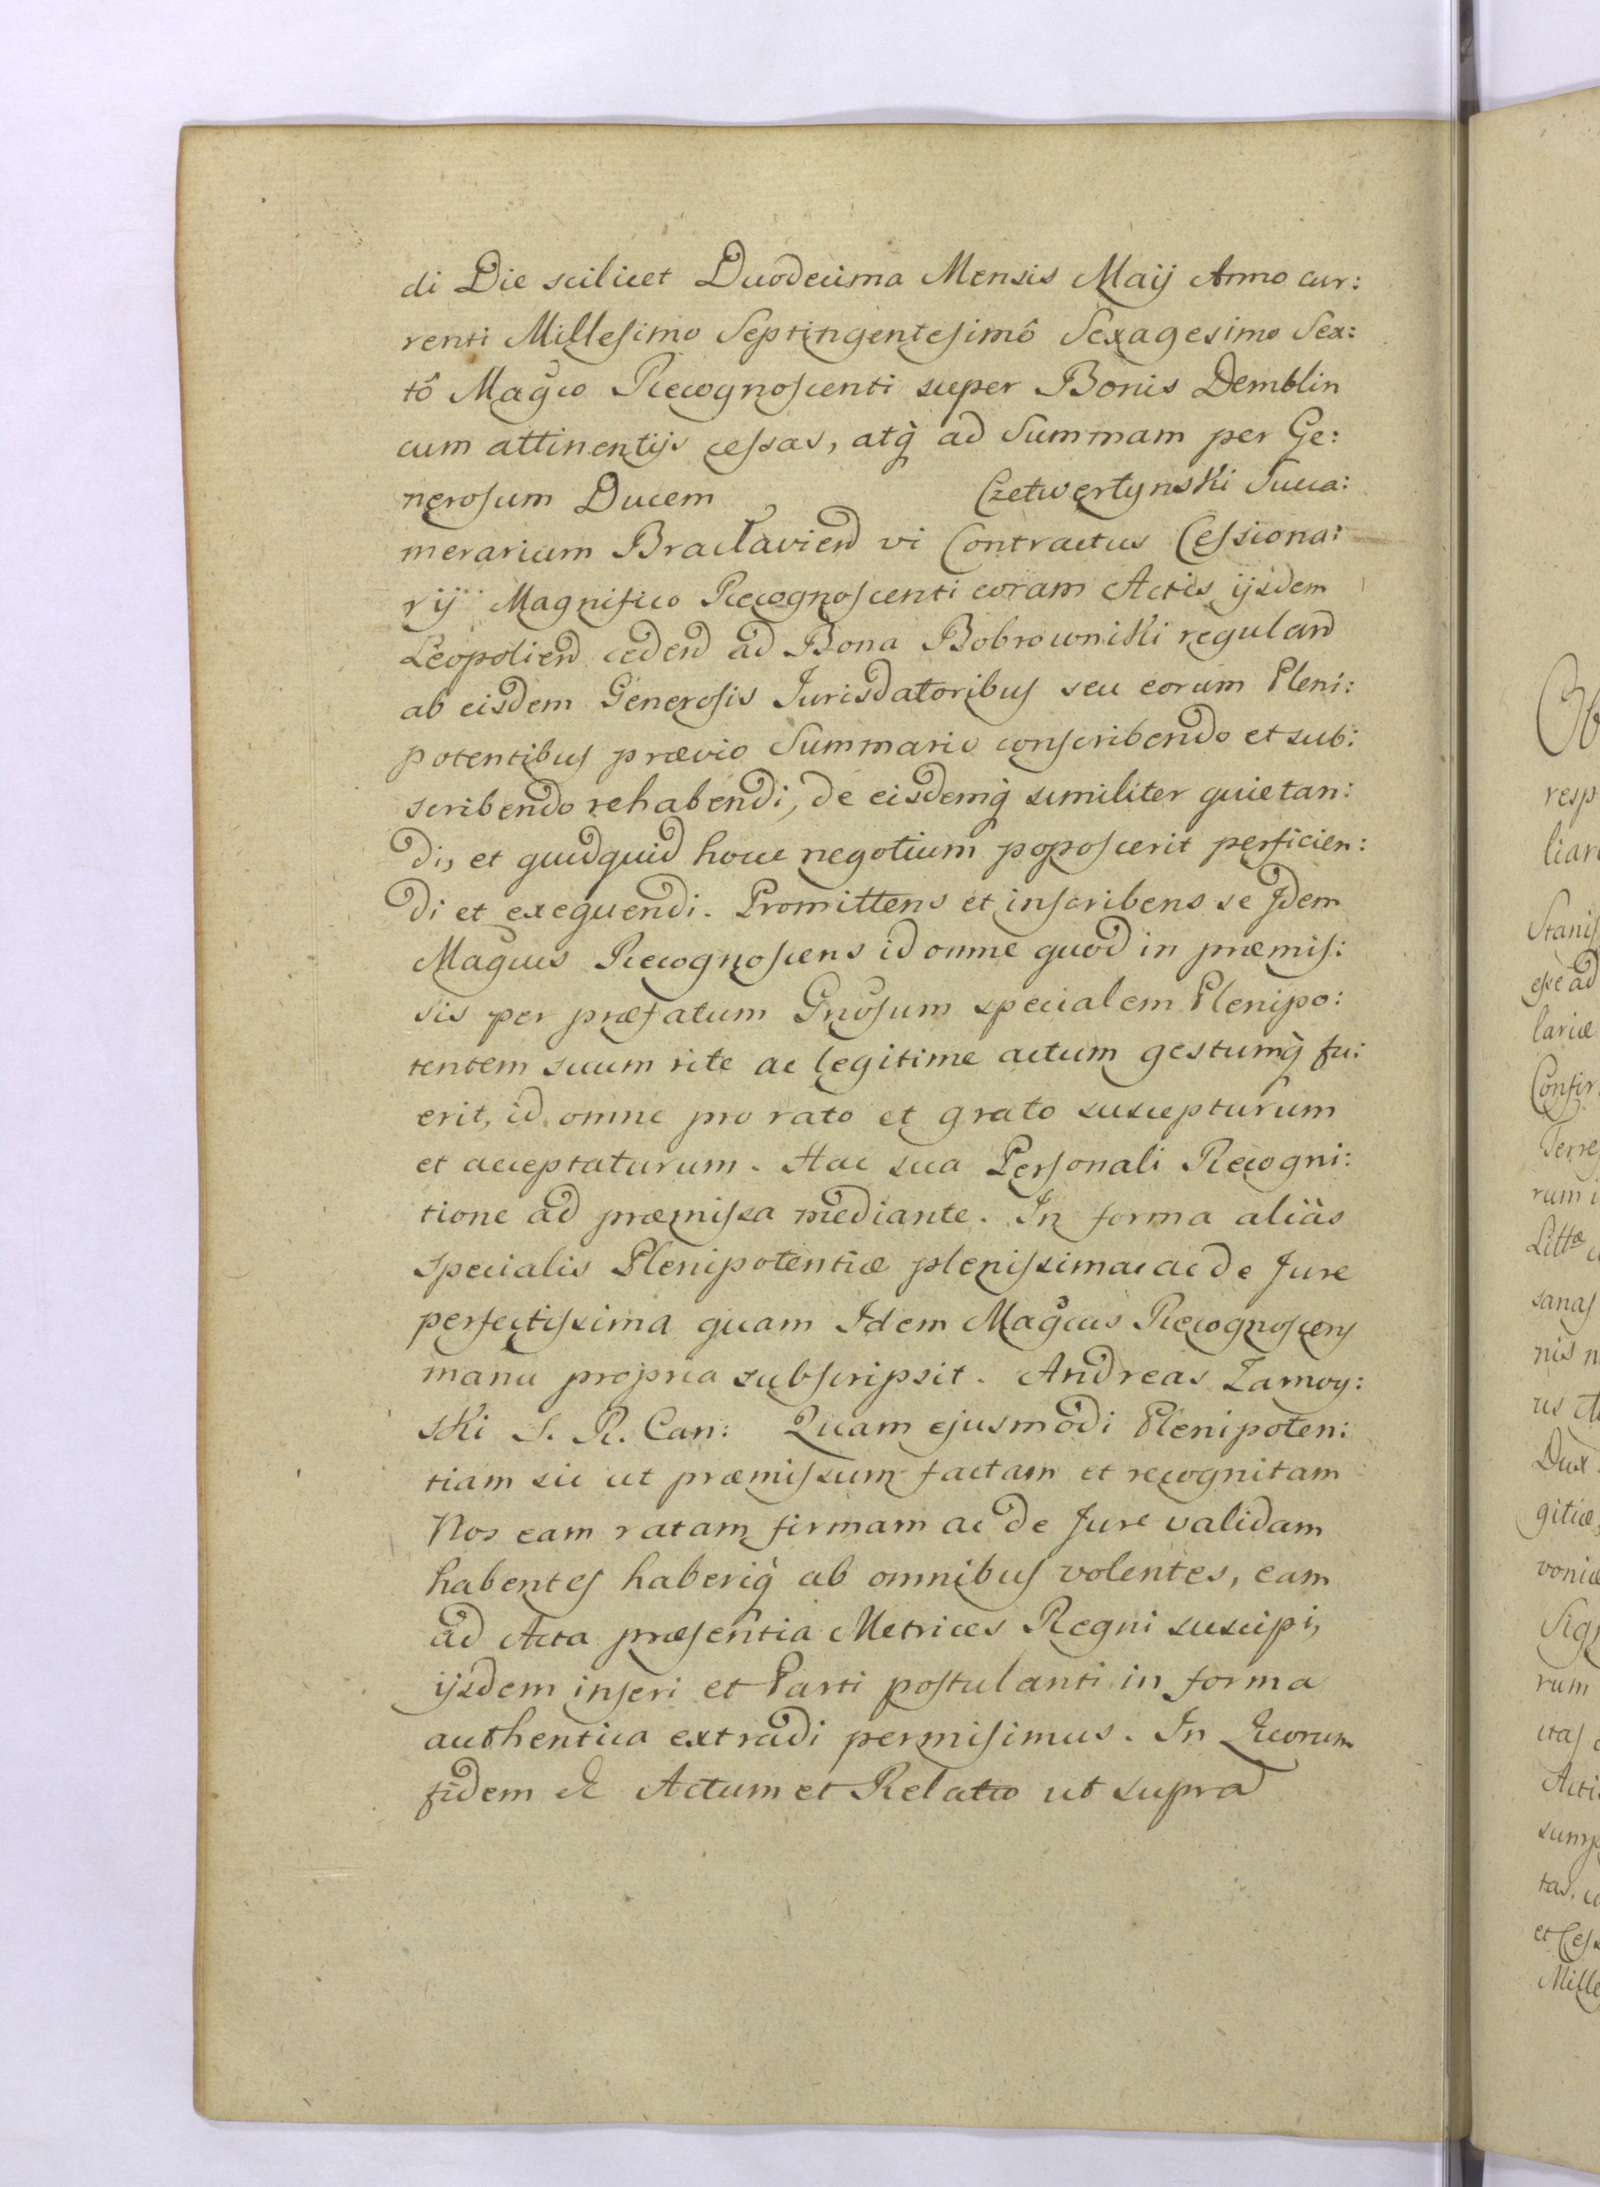 di Die scilicet Duodecima Mensis Maij Anno cur:
renti Millesimo Septingentesimô Sexagesimo Sex:
tô Magco Recognoscenti super Bonis Demblin
cum attinentijs cessas, atq̀ ad Summam per Ge:
nerosum Ducem Czetwertynski Succa:
merarium Braclavien vi Contractus Cessiona:
rij Magnifico Recognoscenti coram Actis ijsdem
Leopolien ceden ad Bona Bobrowniki regulan
ab eisdem Generosis Jurisdatoribus seu eorum Pleni:
potentibus prævio Summario conscribendo et sub:
scribendo rehabendi, de eisdemq̀ similiter quietan:
di, et quidquid hocce negotium poposcerit perficien:
di et exequendi. Promittens et inscribens se Jdem
Magcus Recognoscens id omne quod in præmis:
sis per præfatum Gnosum specialem Plenipo:
tentem suum rite ac legitime actum gestumq̀ fu:
erit, id omne pro rato et grato suscepturum
et acceptaturum. Hac sua Personali Recogni:
tione ad præmissa mediante. In forma aliàs
specialis Plenipotentiæ plenissimae ac de Jure
perfectissima quam Idem Magcus Recognoscens
manu propria subscripsit. Andreas Zamoy:
ski S. R. Can: Quam ejusmodi Plenipoten:
tiam sic ut præmissum factam et recognitam
Nos eam ratam firmam ac de Jure validam
habentes haberiq̀ ab omnibus volentes, eam
ad Acta præsentia Metrices Regni suscipi,
ijsdem inseri et Parti postulanti in forma
authentica extradi permisimus. In Quorum
fidem &c Actum et Relatio ut supra
Ob
resp
liar
Stanis
esse ad
lariæ
Confir
Terres
rum i
Littæ
sanas
nis n
us A
Dux
gitiæ,
voniæ
Sig
rum
itas
Acti
sump
tas, c
et Cess
Mille